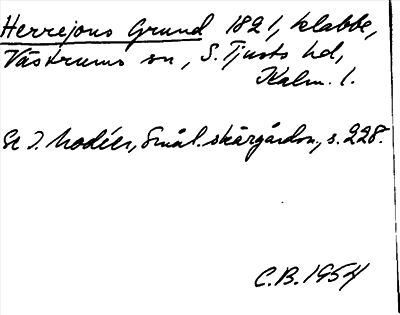 Herrejons Grund 1821, klabbe,
Västrums sn, S. Tjusts hd,
Kalm. l.
E I. Modéer, Smål. skärgårdsn., s. 228.
C.B. 1954